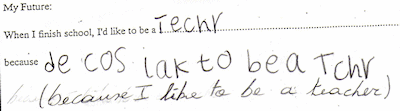 My Future:
When I finish school, I'd like to be a Techr
because de cos iak to be a Tchr
(because I like to be a teacher)